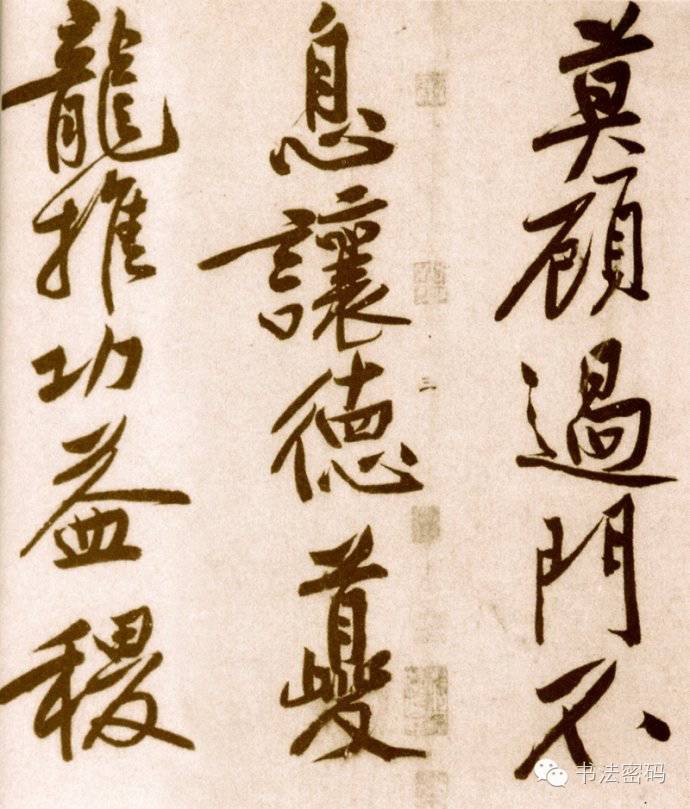 莫顧過門不
息讓德夔
龍推功益稷
三
书法密码